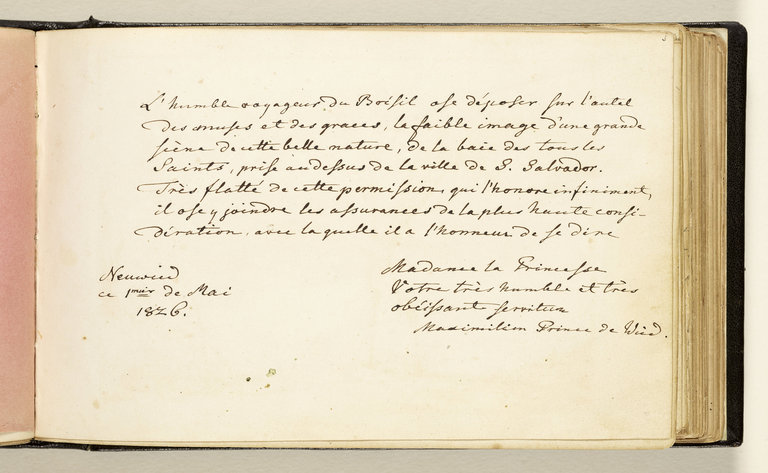 5
L'humble voyageur du Brésil ose déposer sur l'autel
des muses et des graces, la faible image d'une grande
sçène de cette belle nature, de la baie de tous les
Saints, prise au dessus de la ville de S. Salvador.
Très flatté de cette permission, qui l'honore infiniment,
il ose y joindre les assurances de la plus haute consi-
dération, avec la quelle il a l'honneur de se dire
Madame la Princesse
Votre très humble et très
obéissant serviteur
Maximilien Prince de Wied.
Neuwied
ce 1mier de Mai
1826.